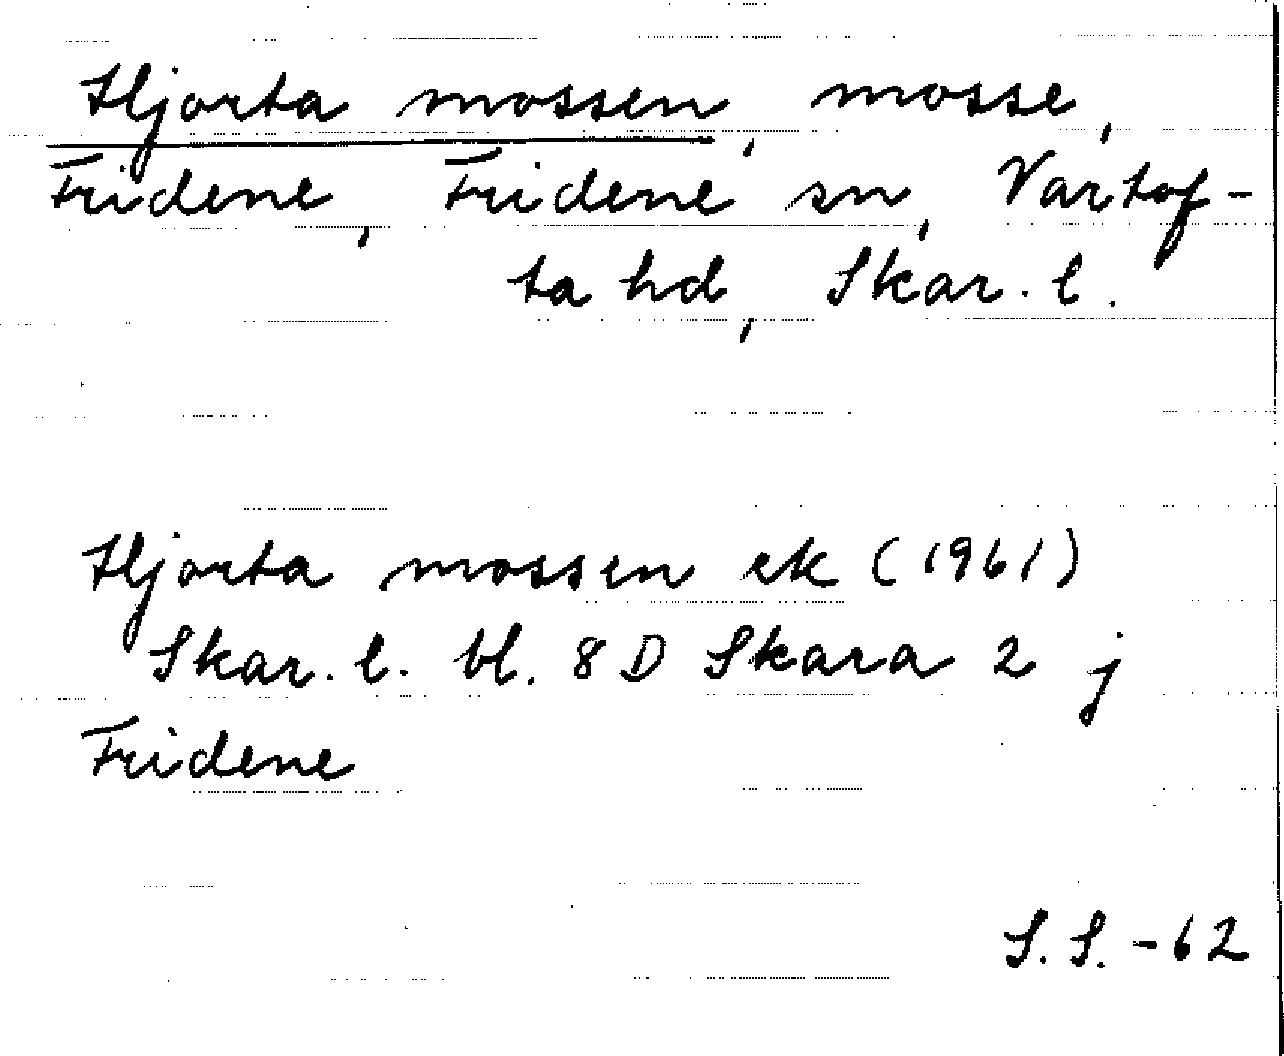 Hjorta mossen, mosse,
Fridene, Fridene sn, Vartof-
ta hd, Skar. l.
Hjorta mossen ek (1961)
Skar. l. bl. 8 D Skara 2 j
Fridene
S. S. -62